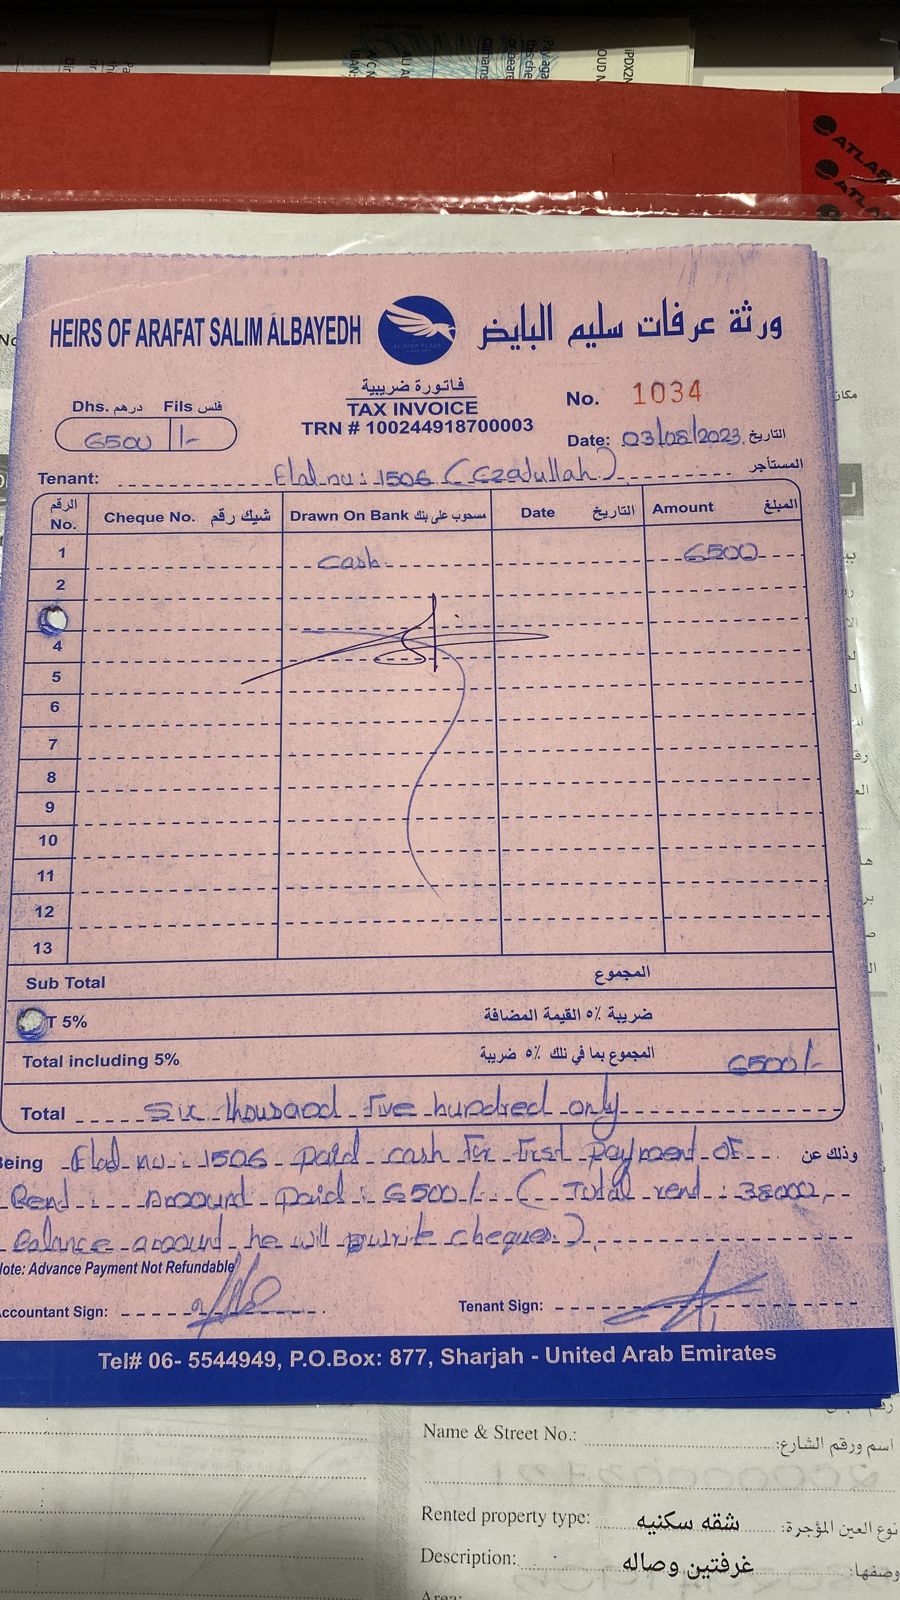 ATLAS
ATLAS
HEIRS OF ARAFAT SALIM ALBAYEDH
ورثة عرفات سليم البايض
AL HISN PLAZA
فاتورة ضريبية
TAX INVOICE
TRN # 100244918700003
No. 1034
Dhs. درهم Fils فلس
6500 /-
Date: 03/08/2023 التاريخ
Tenant: Flat nu : 1506 (Ezadullah) المستأجر
الرقم No. Cheque No. شيك رقم Drawn On Bank مسحوب على بنك Date التاريخ Amount المبلغ
1 cash 6500
2
4
5
6
7
8
9
10
11
12
13
Sub Total المجموع
T 5% ضريبة ٥٪ القيمة المضافة
Total including 5% المجموع بما في ذلك ٥٪ ضريبة 6500/-
Total Six thousand five hundred only
Being Flat nu : 1506 paid cash for first payment of وذلك عن
Rend Amount paid : 6500/- (Total rend : 38000,
Balance amount he will write cheques.)
Note: Advance Payment Not Refundable
Accountant Sign: Tenant Sign:
Tel# 06- 5544949, P.O.Box: 877, Sharjah - United Arab Emirates
Name & Street No.: اسم ورقم الشارع:
Rented property type: شقه سكنيه نوع العين المؤجرة:
Description: غرفتين وصاله وصفها: